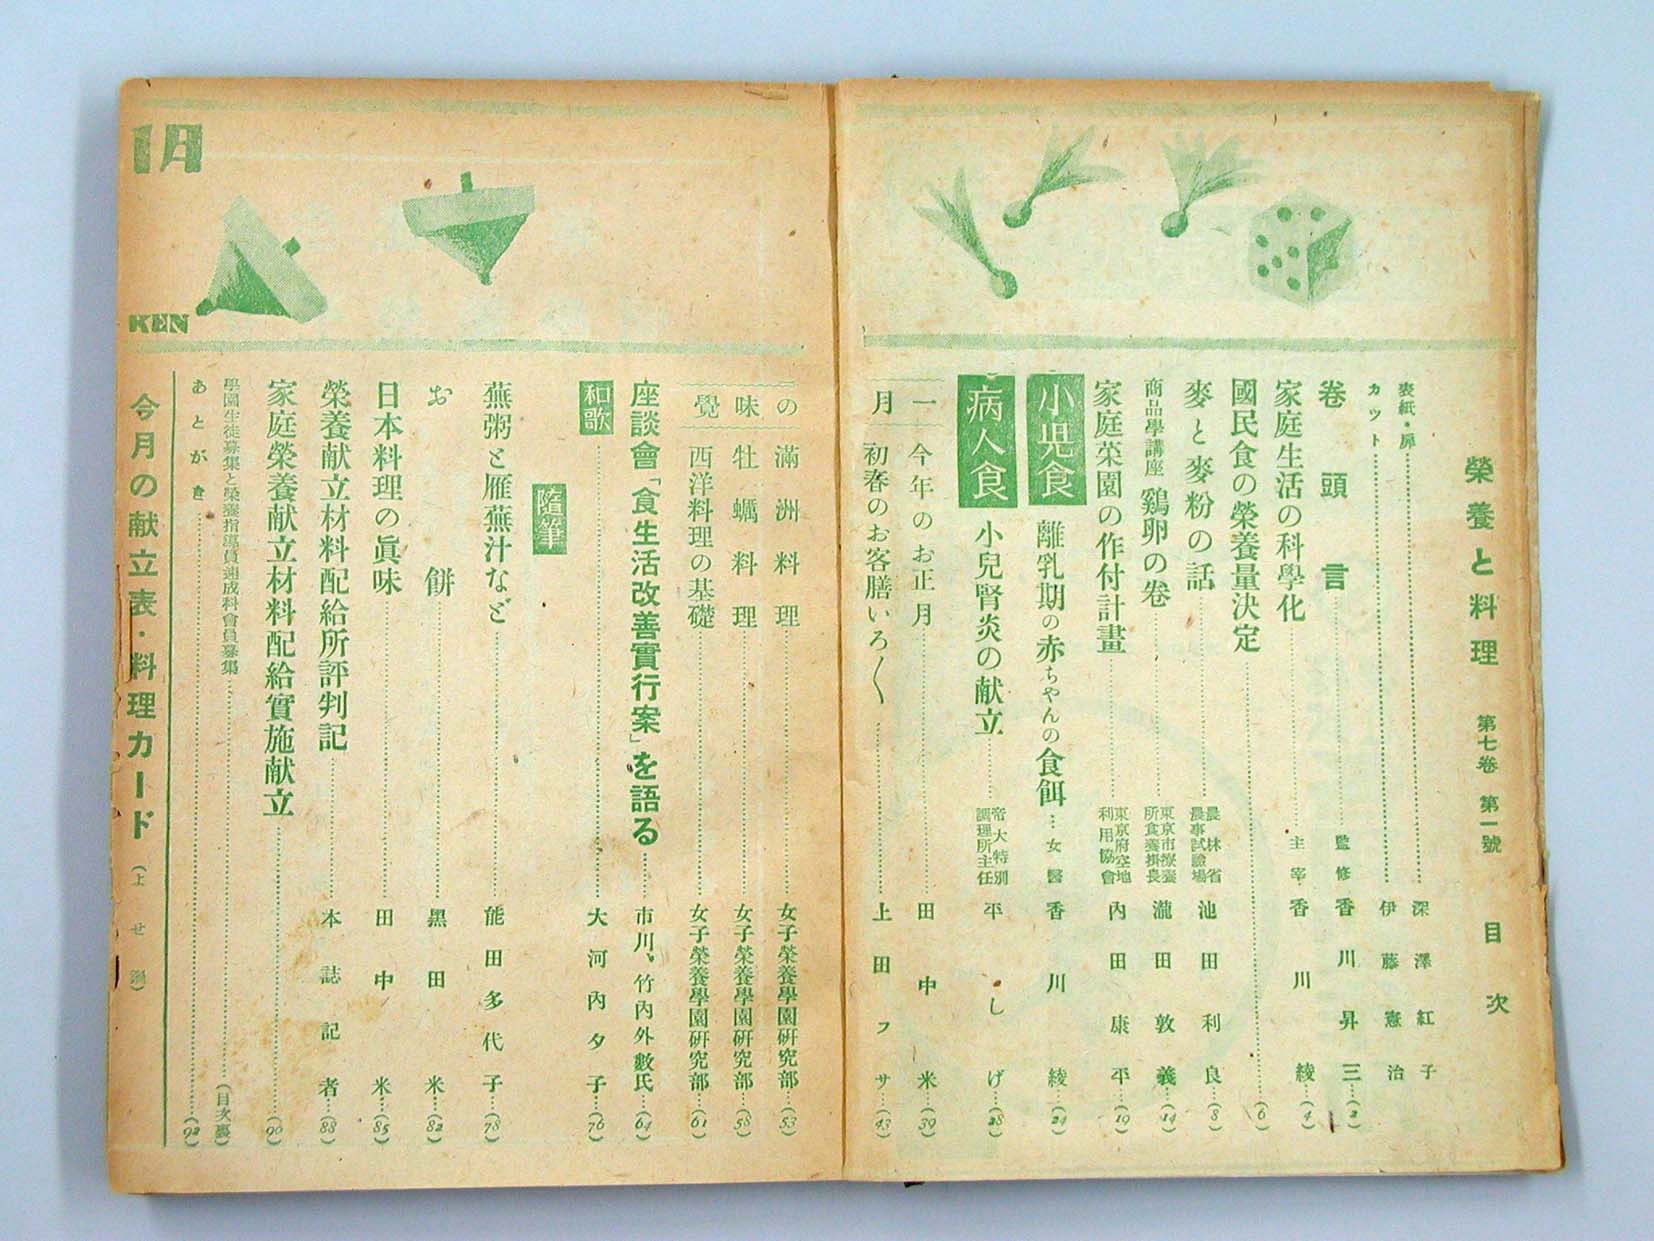 榮養と料理 第七卷 第一號 目次
表紙・扉 深澤紅子
カット 伊藤憲治
卷頭言 監修 香川昇三 (2)
家庭生活の科學化 主宰 香川綾 (4)
國民食の榮養量決定 (6)
麥と麥粉の話 農林省農事試驗場 池田利良 (8)
商品學講座 鷄卵の卷 東京市療養所食養掛長 瀧田敦義 (14)
家庭菜園の作付計畫 東京府空地利用協會 內田康平 (19)
小児食 離乳期の赤ちやんの食餌 女醫 香川綾 (24)
病人食 小兒腎炎の献立 帝大特別調理所主任 平しげ (28)
一月
今年のお正月 田中米 (39)
初春のお客膳いろ〱 上田フサ (43)
1月
KEN
の味覺
滿洲料理 女子榮養學園研究部 (53)
牡蠣料理 女子榮養學園研究部 (58)
西洋料理の基礎 女子榮養學園研究部 (61)
座談會「食生活改善實行案」を語る 市川、竹內外數氏 (64)
和歌 大河內夕子 (76)
隨筆
蕪粥と雁蕪汁など 能田多代子 (78)
お餅 黑田米 (82)
日本料理の眞味 田中米 (85)
榮養献立材料配給所評判記 本誌記者 (88)
家庭榮養献立材料配給實施献立 (90)
學園生徒募集と榮養指導員速成科會員募集 (目次裏)
あとがき (92)
今月の献立表・料理カード (よせ鍋)